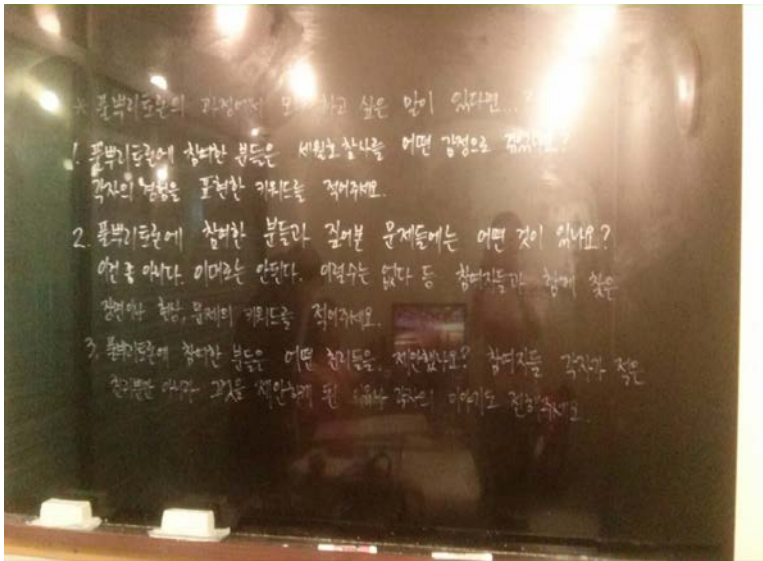 ※ 풀뿌리토론의 과정에서 모 하고 싶은 말이 있다면...?
1. 풀뿌리토론에 참여한 분들은 세월호참사를 어떤 감정으로 겪었나요?
각자의 경험을 표현한 키워드를 적어주세요.
2. 풀뿌리토론에 참여한 분들과 짚어본 문제들에는 어떤 것이 있나요?
이건 좀 아니다. 이대로는 안된다. 이럴수는 없다 등 참여자들과 함께 찾은
장면이나 현상, 문제의 키워드를 적어주세요.
3. 풀뿌리토론에 참여한 분들은 어떤 권리들을 제안했나요? 참여자들 각자가 적은
권리뿐만 아니라 그것을 제안하게 된 이유나 각자의 이야기도 전해주세요.